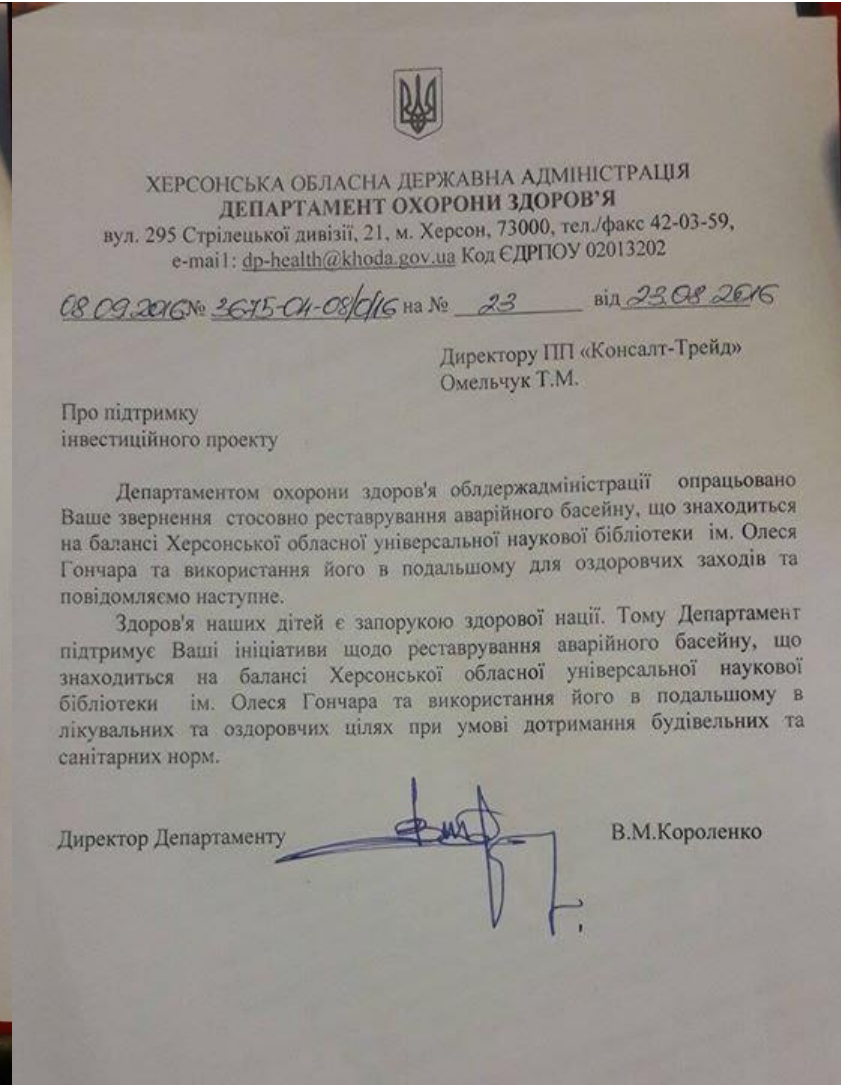 ХЕРСОНСЬКА ОБЛАСНА ДЕРЖАВНА АДМІНІСТРАЦІЯ
ДЕПАРТАМЕНТ ОХОРОНИ ЗДОРОВ’Я
вул. 295 Стрілецької дивізії, 21, м. Херсон, 73000, тел./факс 42-03-59,
e-mail: dp-health@khoda.gov.ua Код ЄДРПОУ 02013202
08.09.2016№ 3675-04-08/0/16 на № 23 від 23.08.2016
Директору ПП «Консалт-Трейд»
Омельчук Т.М.
Про підтримку
інвестиційного проекту
Департаментом охорони здоров'я облдержадміністрації опрацьовано
Ваше звернення стосовно реставрування аварійного басейну, що знаходиться
на балансі Херсонської обласної універсальної наукової бібліотеки ім. Олеся
Гончара та використання його в подальшому для оздоровчих заходів та
повідомляємо наступне.
Здоров'я наших дітей є запорукою здорової нації. Тому Департамент
підтримує Ваші ініціативи щодо реставрування аварійного басейну, що
знаходиться на балансі Херсонської обласної універсальної наукової
бібліотеки ім. Олеся Гончара та використання його в подальшому в
лікувальних та оздоровчих цілях при умові дотримання будівельних та
санітарних норм.
Директор Департаменту В.М.Короленко